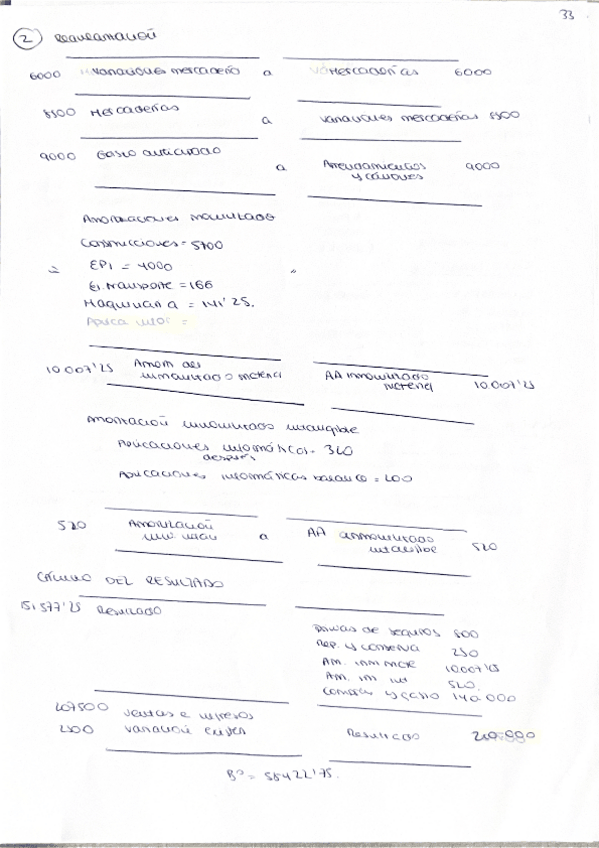 33
2 REGULARIZACIÓN
6000 Variaciones mercadería a Mercaderías 6000
8500 Mercaderías a Variaciones mercaderías 8500
9000 Gasto anticipado a Arrendamientos y cánones 9000
Amortizaciones inmovilizado
Construcciones = 5700
EPI = 4000
El. transporte = 166
Maquinaria = 141'25.
Aplica infor =
10.007'25 Amort del inmovilizado material AA inmovilizado material 10.007'25
Amortización inmovilizado intangible
Aplicaciones informáticas = 320
después
Aplicaciones informáticas balance = 200
520 Amortización inv. intan a AA inmovilizado intangible 520
CÁLCULO DEL RESULTADO
151.577'25 Resultado
Primas de seguros 800
Rep. y conserva 250
Am. inm mat 10.007'25
Am. in int 520.
Compras y gasto 140.000
207500 Ventas e ingresos
2500 variación exist Resultado
Bº = 58422'75.